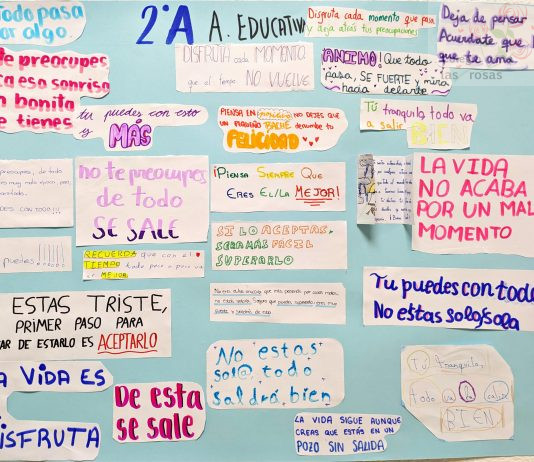 Todo pasa
por algo.
2ºA A. EDUCATIVA
Disfruta cada momento que pasa
y deja atrás tus preocupaciones
Deja de pensar
Acuérdate que
que te ama
las rosas
DISFRUTA cada MOMENTO
que el tiempo NO VUELVE
ANIMO! Que todo
pasa, SE FUERTE y mira
hacia delante
te preocupes
ca esa sonrisa
n bonita
e tienes
tu puedes con esto
y MÁS
PIENSA EN POSITIVO NO DEJES QUE
UN PEQUEÑO BACHE derrumbe tu
FELICIDAD
Tú tranquilo todo va
a salir BIEN
no te preocupes
de todo
SE SALE
¡Piensa SIEMPRE QUE
ERES EL/LA MEJOR!
LA VIDA
NO ACABA
POR UN MAL
MOMENTO
puedes!!!!!!
RECUERDA que con el
TIEMPO todo pasa y para
MEJOR
SI LO ACEPTAS,
SERA MÁS FACIL
SUPERARLO
ESTAS TRISTE,
PRIMER PASO PARA
AR DE ESTARLO ES ACEPTARLO
Tu puedes con todo
No estas solo/sola
No estas
sol@, todo
saldrá bien
A VIDA ES
DISFRUTA
De esta
se sale
LA VIDA SIGUE AUNQUE
CREAS QUE ESTÁS EN UN
POZO SIN SALIDA
Tú tranquilo,
todo va a salir
BIEN